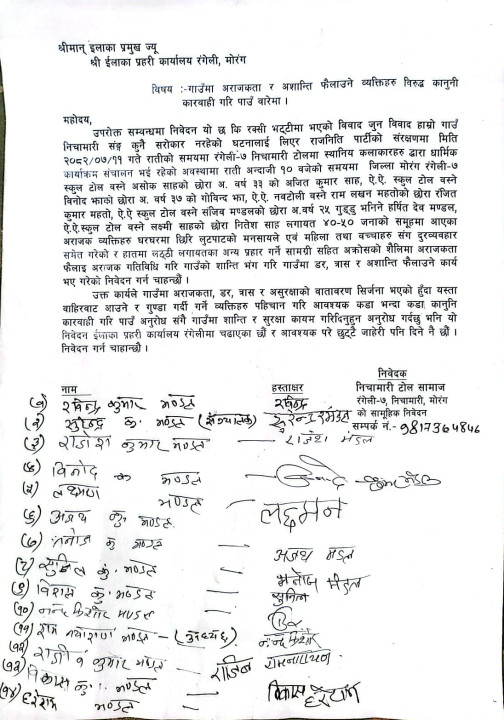 श्रीमान् इलाका प्रमुख ज्यू
श्री ईलाका प्रहरी कार्यालय रंगेली, मोरंग
विषय :-गाउँमा अराजकता र अशान्ति फैलाउने व्यक्तिहरु विरुद्ध कानुनी
कारवाही गरि पाउँ वारेमा ।
महोदय,
उपरोक्त सम्वन्धमा निवेदन यो छ कि रक्सी भट्टीमा भएको विवाद जुन विवाद हाम्रो गाउँ
निचामारी संङ्ग कुनै सरोकार नरहेको घटनालाई लिएर राजनिति पार्टीको संरक्षणमा मिति
२०८२/०७/११ गते रातीको समयमा रंगेली-७ निचामारी टोलमा स्थानिय कलाकारहरु द्वारा धार्मिक
कार्यक्रम संचालन भई रहेको अवस्थामा राती अन्दाजी १० वजेको समयमा जिल्ला मोरंग रंगेली-७
स्कुल टोल वस्ने असोक साहको छोरा अ. वर्ष ३३ को अजित कुमार साह, ऐ.ऐ. स्कुल टोल वस्ने
विनोद झाको छोरा अ. वर्ष ३७ को गोविन्द झा, ऐ.ऐ. नवटोली वस्ने राम लखन महतोको छोरा रंजित
कुमार महतो, ऐ.ऐ स्कुल टोल वस्ने संजिव मण्डलको छोरा अ.वर्ष २५ गुड्डु भनिने हर्षित देव मण्डल,
ऐ.ऐ.स्कुल टोल वस्ने लक्ष्मी साहको छोरा नितेश साह लगायत ४०-५० जनाको समूहमा आएका
अराजक व्यक्तिहरु घरघरमा छिरि लुटपाटको मनसायले एवं महिला तथा वच्चाहरु संग दुरव्यवहार
समेत गरेको र हातमा लठ्ठी लगायतका अन्य प्रहार गर्ने सामग्री सहित अक्रोसको शैलिमा अराजकता
फैलाइ अराजक गतिविधि गरि गाउँको शान्ति भंग गरि गाउँमा डर, त्रास र अशान्ति फैलाउने कार्य
भए गरेको निवेदन गर्न चाहन्छौं ।
उक्त कार्यले गाउँमा अराजकता, डर, त्रास र असुरक्षाको वातावरण सिर्जना भएको हुँदा यस्ता
वाहिरवाट आउने र गुण्डा गर्दी गर्ने व्यक्तिहरु पहिचान गरि आवश्यक कडा भन्दा कडा कानुनि
कारवाही गरि पाउँ अनुरोध संगै गाउँमा शान्ति र सुरक्षा कायम गरिदिनुहुन अनुरोध गर्दछु भनि यो
निवेदन ईलाका प्रहरी कार्यालय रंगेलीमा चढाएका छौं र आवश्यक परे छुट्टै जाहेरी पनि दिने नै छौं ।
निवेदन गर्न चाहान्छौ ।
निवेदक
नाम हस्ताक्षर निचामारी टोल सामाज
रंगेली-७, निचामारी, मोरंग
को सामूहिक निवेदन
सम्पर्क नं.- 9817364846
(१) रविन्द्र कुमार मण्डल रविन्द्र
(२) सुरेन्द्र कु. मण्डल सुरेन्द्र मंडल
(३) राजेश कुमार मण्डल - राजेश मंडल
(४) विनोद क मण्डल
(५) लक्ष्मण मण्डल लक्ष्मन
(६) अजय कु. मण्डल अजय मंडल
(७) मनोज क मण्डल मनोज मंडल
(८) सुनिल कु. मण्डल सुनिल
(९) विशाल कु. मण्डल
(१०) नन्द किशोर मण्डल नन्द किशोर
(११) राम नारायण मण्डल रामनारायण
(१२) कुमार मण्डल
(१३) विकास कु. मण्डल विकास
(१४) हरेराम मण्डल हरेराम